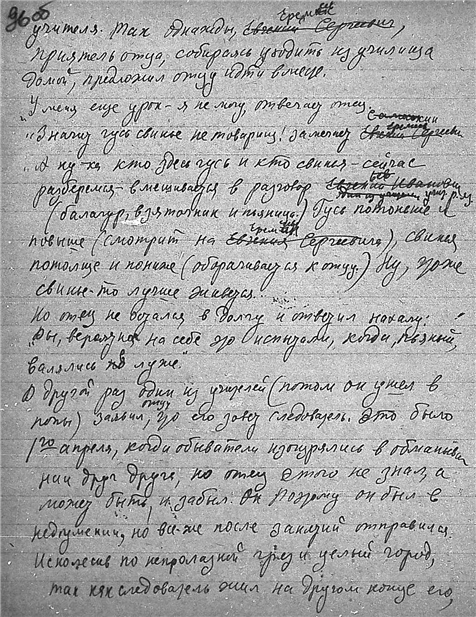 96 об
учителя. Так однажды, Евгений Сергеевич,
приятель отца, собираясь уходить из училища
домой, предложил отцу идти вместе.
"У меня еще урок - я не могу, отвечает отец.
"Значит гусь свинье не товарищ! замечает Евгений Сергеевич
"А ну-ка кто здесь гусь и кто свинья - сейчас
разберемся - вмешивается в разговор Евгений Иванович
(балагур, взяточник и пьяница.) Гусь потоньше и
повыше (смотрит на Евгения Сергеевича), свинья
потолще и пониже (оборачивается к отцу.) Ну, тоже
свинье-то лучше живется.
Но отец не остался в долгу и ответил нахалу:
"Вы, вероятно, на себе это испытали, когда, пьяный,
валялись в луже."
В другой раз один из учителей (потом он ушел в
попы) заявил, отцу что его зовет следователь. Это было
1го апреля, когда обыватели изощрялись в обманыва
нии друг друга, но отец этого не знал, а
может быть, и забыл. Поэтому он был в
недоумении, но все-же после занятий отправился.
Исколесив по непролазной грязи целый город,
так как следователь жил на другом конце его,